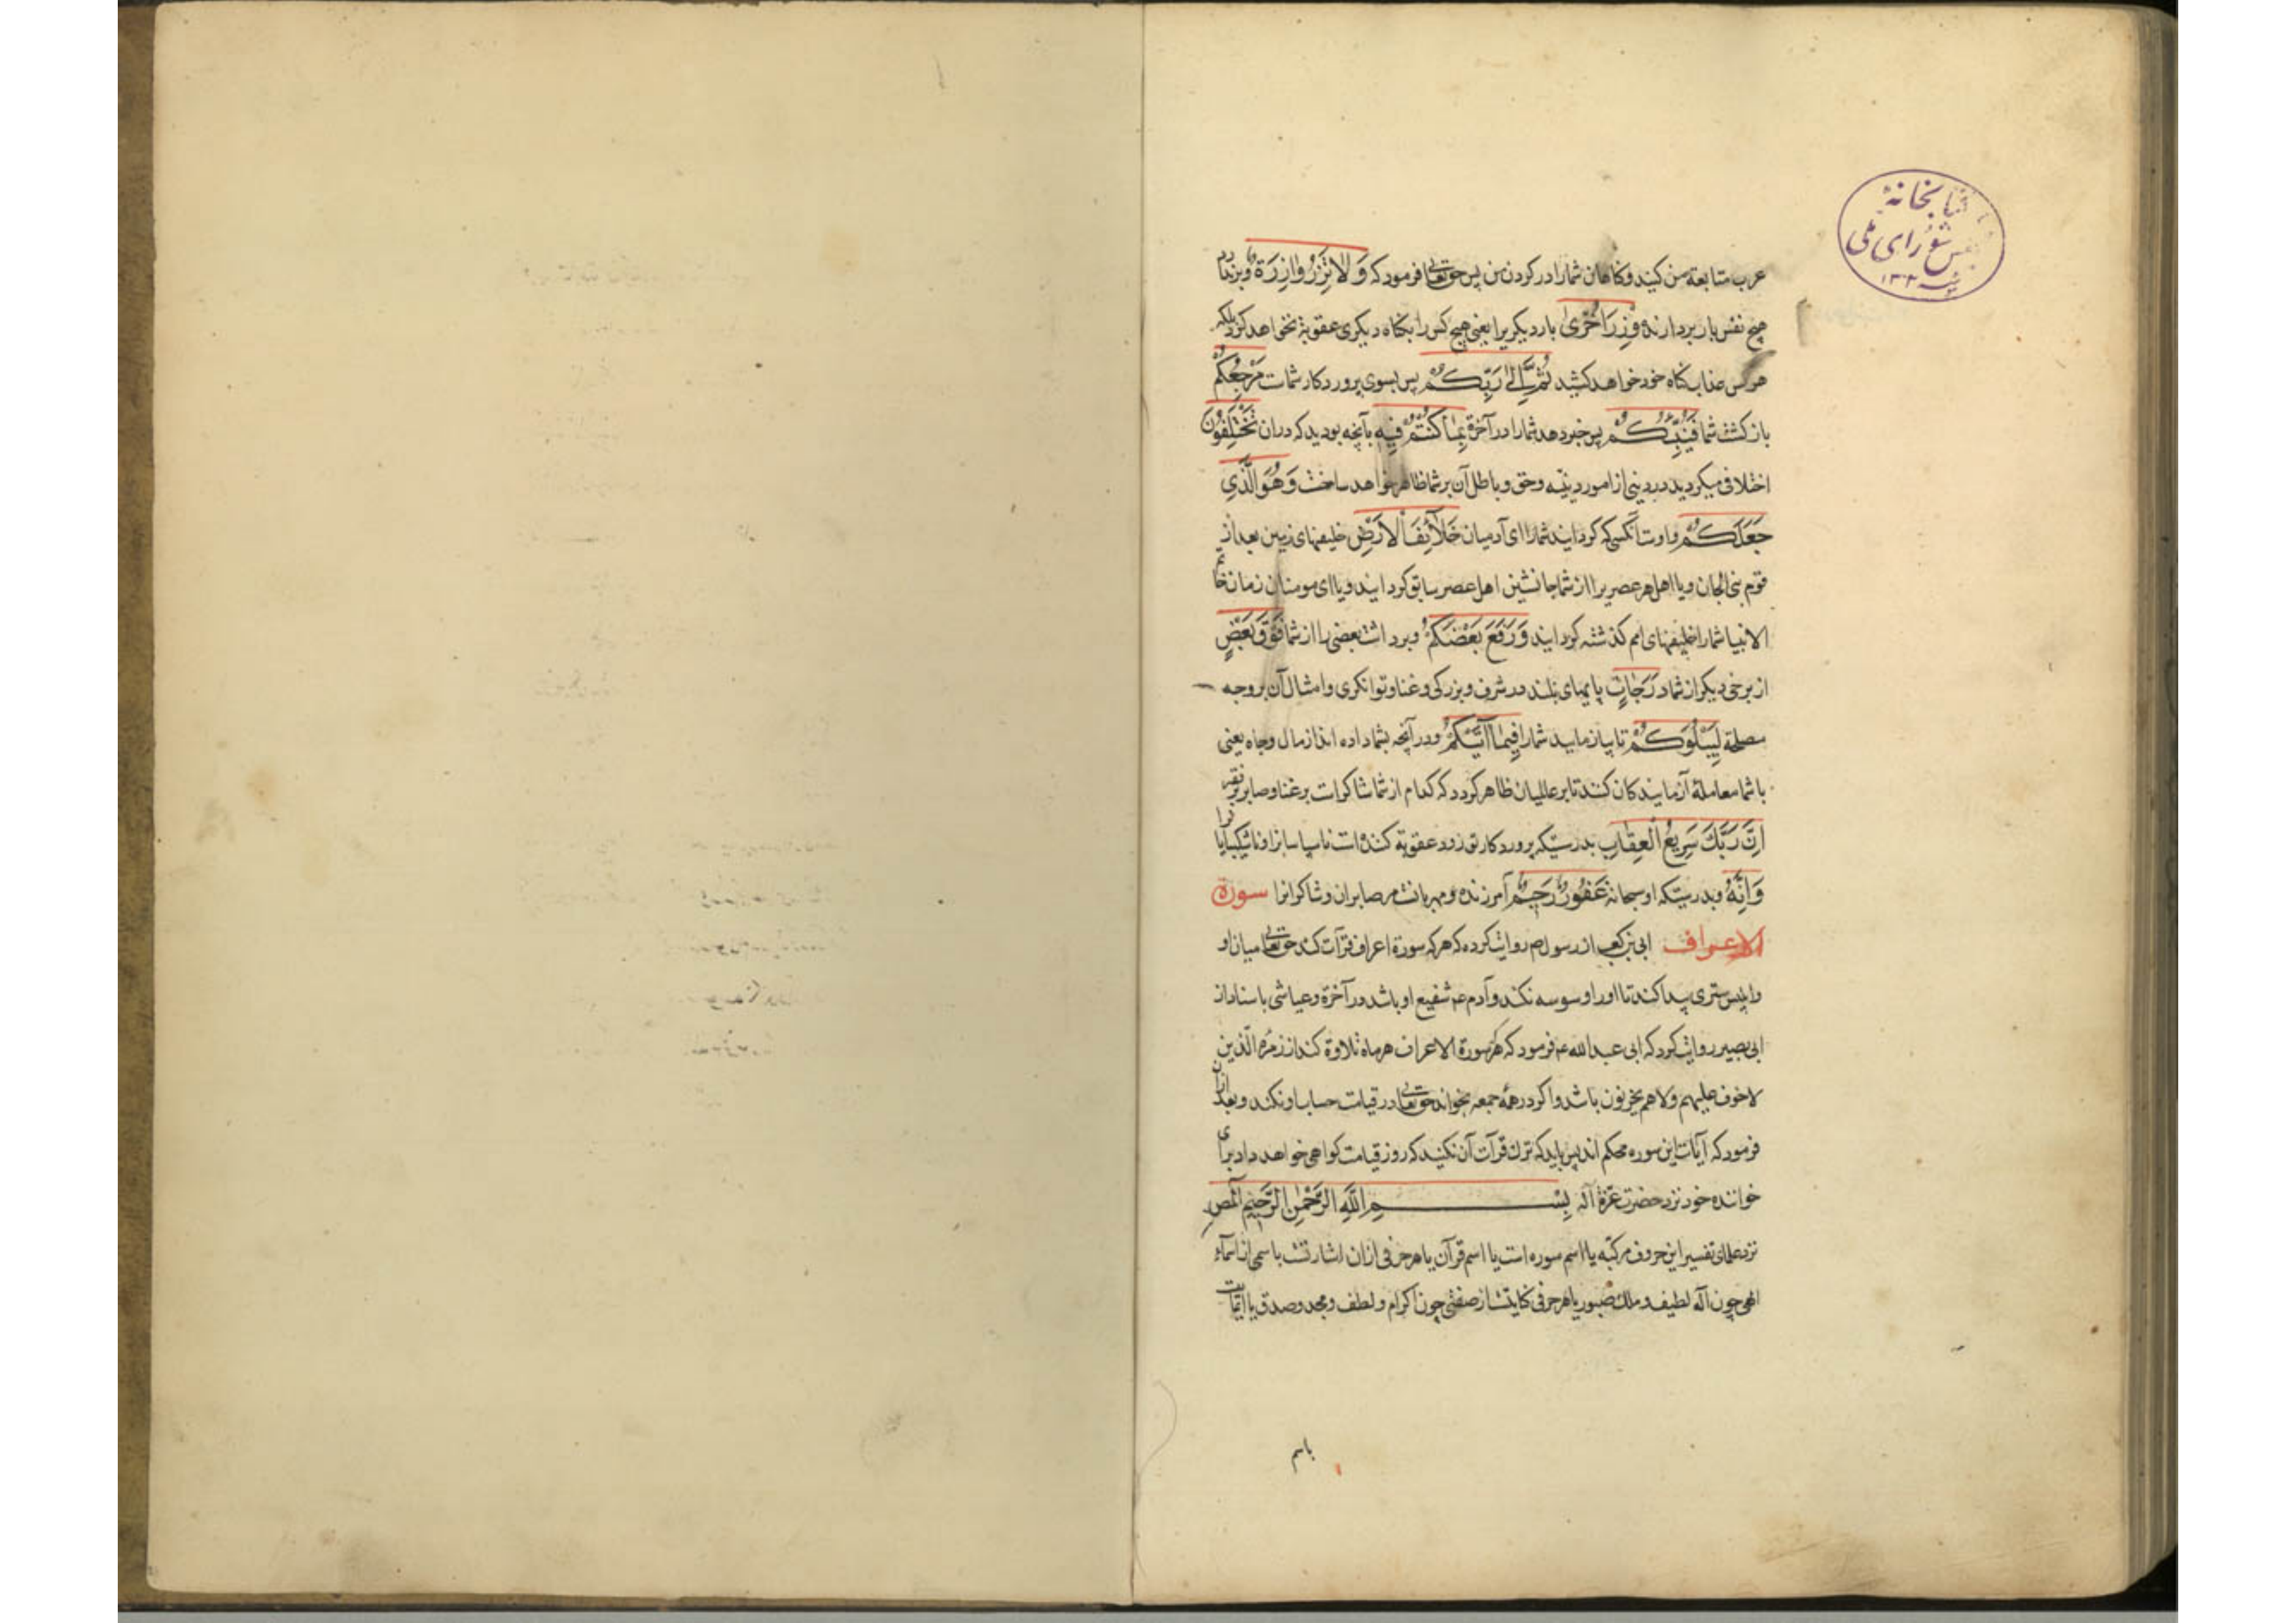 کتابخانهٔ
مجلس شورای ملی
عرب متابعه من کنید و کناهان شما را در کردن من پس حق تعالی فرمود که وَلاتَزِرُ وازِرَةٌ و بزندارد
هیچ نفس بار بردارنده وِزرَ اُخری بار دیکریرا یعنی هیچ کس را بکناه دیکری عقوبة نخواهد کرد بلکه
هر کس عذاب کناه خود خواهد کشید ثُمَّ اِلی رَبِّکُم پس بسوی پروردکار شماست مَرجِعُکُم
بازکشت شما فَیُنَبِّئُکُم پس خبر دهد شما را در آخرة بِما کُنتُم فیهِ بآنچه بودید که دران تَختَلِفُونَ
اختلاف میکردید در دینی از امور دینیه و حق و باطل آن بر شما ظاهر خواهد ساخت وَهُوَ الَّذی
جَعَلَکُم و اوست آنکسی که کردانید شما را ای آدمیان خَلآئِفَ الاَرضِ خلیفهای زمین بعد از
قوم بنی الجان و یا اهل هر عصریرا از شما جانشین اهل عصر سابق کردانید و یا ای مومنان زمان خاتم
الانبیا شما را خلیفهای امم کذشته کردانید وَرَفَعَ بَعضَکُم و برداشت بعضی را از شما فَوقَ بَعضٍ
از برخی دیکر از شما دَرَجاتٍ پایهای بلند در شرف و بزرکی و غنا و توانکری و امثال آن بر وجه
مصلحة لِیَبلُوَکُم تا بیازماید شما را فیما آتیکُم و در آنچه بشما داده اند از مال و جاه یعنی
با شما معاملهٔ آزمایندکان کنند تا بر عالمیان ظاهر کردد که کدام از شما شاکرات بر غنا و صابر بر فقر
اِنَّ رَبَّکَ سَریعُ العِقابِ بدرستیکه پروردکار تو زود عقوبة کننده است ناسپاسانرا و ناشکیبایانرا
وَاِنَّهُ و بدرستیکه او سبحانه غَفُورٌ رَحیمٌ آمرزنده و مهربانست مر صابران و شاکرانرا سورة
الاعراف ابی بن کعب از رسول ص روایت کرده که هر که سورة اعراف قرآت کند حق تعالی میان او
و ابلیس ستری پیدا کند تا او را وسوسه نکند و آدم عم شفیع او باشد در آخرة و عیاشی باسناد از
ابی بصیر روایت کرد که ابی عبدالله ع فرمود که هر که سورة الاعراف هر ماه تلاوة کند از زمرهٔ الّذین
لاخوف علیهم ولاهم یحزنون باشد و اکر در همهٔ جمعه بخواند حق تعالی در قیامت حساب او نکند و بعد ازان
فرمود که آیات این سوره محکم اند پس باید که ترک قرآت آن نکنید که روز قیامت کواهی خواهد داد برای
خواننده خود نزد حضرت عزة آله بِسمِ اللّهِ الرَّحمنِ الرَّحیمِ آلمص
نزد علمای تفسیر این حروف مرکبه یا اسم سوره است یا اسم قرآن یا هر حرفی ازان اشارتست باسمی از اسمآء
الهی چون اله لطیف و ملک صبور یا هر حرفی کنایتست از صفتی چون اکرام و لطف و مجد و صدق یا
باسم